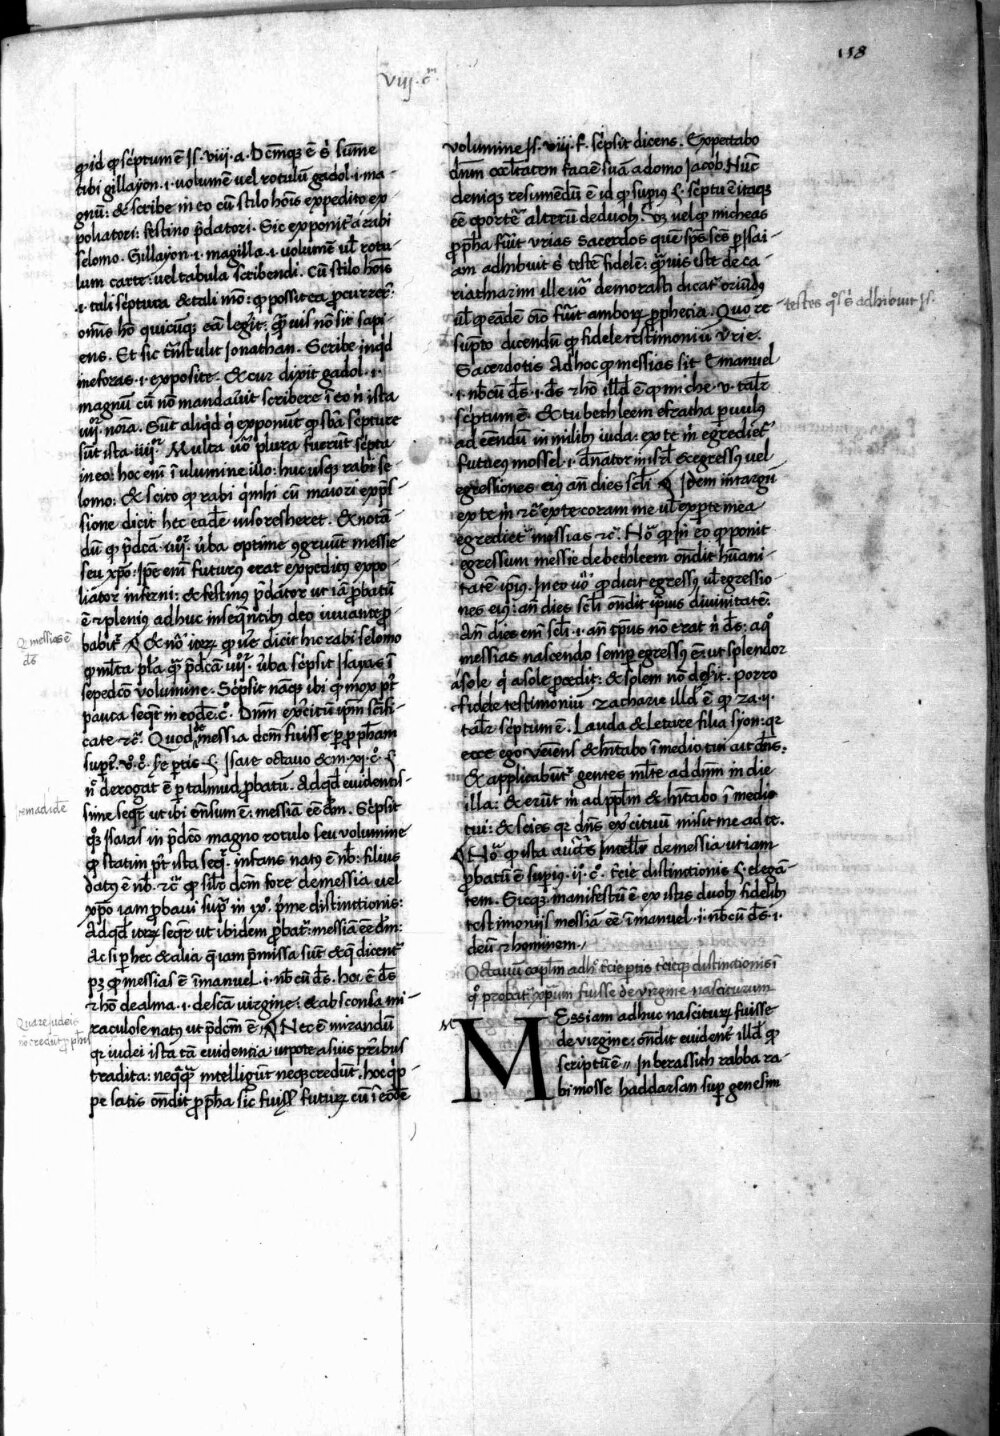 118
viij. c̄.
qͥd qͥ sc̓ptum ē Js. viij. a. Dc̄mqꝫ ē ŝ Sume
tibi gillayon .i. volumē vel rotulū gadol .i. ma-
gnū: & scribe in eo cū stilo hoīs expedito ex
poliatori: festino p̄datori. Sic exponit̄ a rabi
selomo. Gillayon .i. magilla .i. volumē vl̄ rotu-
lum carte: vel tabula scribendi. Cū stilo hoīs
.i. tali sc̓ptura & tali mō: ꝙ possit ea procurrer̄
om̄is hō quicūqꝫ eā leg̓it: qͣuis nō sit sapi-
ens. Et sic tͣnstulit Jonathan. Scribe inqͥd
ineo foras .i. exposite. & cur dixit gadol .i.
magnū cū nō mandauit scribere ī eo n̓ ista
iiijᵒʳ noīa. Sūt aliqͥd qͥ exponūt ꝙ sb̄a sc̓pture
sūt ista iiijᵒʳ. Multa v̓o plura fuerūt sc̓pta
in eo: hoc em̄ ī uolumine illo: huc usqꝫ rabi se-
lomo: & scito ꝙ rabi qͥmhi cū maiori exp̄s-
sione dicit hec eadē insoresheret. & notā-
dū ꝙ p̄dcā iiijᵒʳ v̓ba optime ꝯgruūt messie
seu xp̄o: ip̄e em̄ futurus erat expeditus expo-
liator inferni: & festinus p̄dator ut iā p̄batū
ē & plenius adhuc inseqn̄tibꝫ deo iuuante ꝓ-
babit̄. & nō itex ꝙ ue̓ dicit hic rabi selomo
ꝙ ml̄ta pl̓a qͣ p̄dcā iiijᵒʳ v̓ba sc̓psit Jsayas ī
sepedcō volumine. Sc̓psit nāqꝫ ibi qͥ mox pt̄
pauca seqt̄ in eodē c̊. Dn̄m exc̓ituū ip̄m sc̄ifi-
cate ⁊c̄. Quod de messia dcm̄ fuisse ꝑ ꝓph̄am
supͣ
n̊ derogat ē ꝑ talmud ꝓbatū. Adqd̄ euidentis-
sime seqt̄ ut ibi on̄sum ē: messiā eē dm̄. Sc̓psit
qꝫ Jsaias in p̄dcō magno rotulo seu volumine
ꝙ statim pt̄ ista seqt̄. infans natus ē nb̄: filius
datus ē nb̄. ⁊c̄ ꝙ sil̄r dcm̄ fore de messia vel
xp̄o iam ꝓbaui supͣ in ix̊. p̄me distinctionis:
Adqd̄ itex seqr̄ ut ibidem ꝓbat̄: messiā eē dm̄:
Ac si ꝑ hec & alia qͥ iam p̄missa sūt & qͥ dicent̄
pꝫ ꝙ messias ē īmanuel .i. nb̄cū ds̄. hoc ē ds̄
& hō de alma .i. descā virgine: & absconsa mi-
raculose natus ut p̄dcm̄ ē. Nec ē mirandū
qr iudei ista tā euidentia utpote a suis pr̄ibus
tradita: neqͥqͣ intelligūt neqꝫ credūt. hoc qͥp-
pe satis on̄dit ꝓph̄a sic fuiss̄ futux cū ī eodē
Qͥ messias ē
ds̄
Quare iudei
nō credūt ꝓphis
volumine Js. viij. f. sc̓psit dicens. Expectabo
dn̄m celātem faciē suā a domo Jacob. Nūc
deniqꝫ resumēdū ē id ꝙ supͥus ē sc̓ptū ē itaqꝫ
eē oportꝫ alterū deduobꝫ. Vꝫ uel ꝙ micheas
ꝓph̄a fuīt vrias sacerdos quē sp̄s sc̄s ꝑ Jsai-
am adhibuit ŝ testē fidelē: qͣuis iste de ca-
riathiarim ille v̓o de morasti dicat̄ oriūdus
vl̄ ꝙ eadē oīo fuīt amborꝫ ꝓphecia. Quo re
supto dicendū ꝙ fidele testimoniū Vrie.
Sacerdotis Ad hoc ꝙ messias sit Emanuel
.i. nb̄cū ds̄ .i. ds̄ & hō illd̄ ē ꝙ miche. v. talr̄
sc̓ptum ē. & tu bethleem efratha paruulus
ad eēndū in milibꝫ iuda: ex te m̓ egrediet̄
futurus mossel .i. dn̄ator in isrl̄ & egressus vel
egressiones eius an̄ dies scl̄i. Jdem in targū
ex te m̓ ⁊c̄ ex te coram me vl̄ ex ꝑte mea
egrediet̄ messias ⁊c̄. Nō ꝙ in eo ꝙ ponit
egressum messie de bethleem on̄dit hūani-
tatē ip̄ius. Jn eo v̓o ꝙ dicit egressus vl̄ egressio-
nes eius: an̄ dies scl̄i on̄dit ip̄ius diuinitatē.
An̄ dies em̄ scl̄i .i. an̄ tp̄us nō erat n̓ ds̄: a qͦ
messias nascendo semꝑ egressus ē: ut splendor
a sole qͥ a sole ꝓcedit: & solem nō desit. porro
fidele testimoniū zacharie illd̄ ē ꝙ za. ij.
talr̄ sc̓ptum ē. Lauda & letare filia syon: qr
ecce ego ueniens & hītabo ī medio tui ait dn̄s:
& applicabūt̄ gentes ml̄te ad dn̄m in die
illa: & erūt m̓ ad ppl̄m & hītabo ī medio
tui: & scies qr dn̄s exc̓ituū misit me ad te.
Nō ꝙ ista auctͣs intell̄r de messia ut iam
ꝓbatū ē supͥus. ij. c̊. tc̓ie distinctionis
tem. Sicqꝫ manifestū ē ex istis duobꝫ fidelibꝫ
testimonijs messiā eē īmanuel .i. nb̄cū ds̄ .i.
deū & hominem.
Octauū capl̄m adhͦ. tc̓ie ꝑtis tc̓ieqꝫ distinctionis ī
qͦ probat̄ xp̄um fuisse de virgine nasciturum
MEssiam adhuc nasciturꝫ fuisse
de virgine: on̄dit euident̄ illd̄ ꝙ
scriptū ē. Jn berassith rabba ra-
bi mosse haddarsan suꝑ genesim
testes qͦs ŝ adhibuit Js.